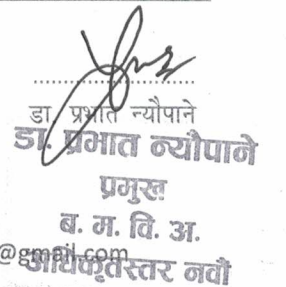 डा. प्रभात न्यौपाने
डा. प्रभात न्यौपाने
प्रमुख
ब. म. वि. अ.
@gmail.com
अधिकृतस्तर नवौ